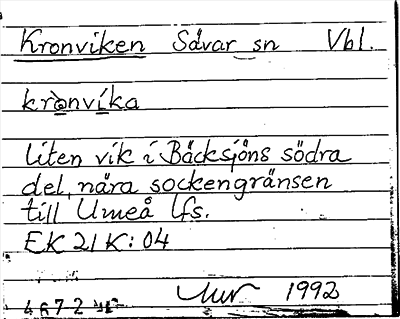 Kronviken Sävar sn Vbl.
krònvika
liten vik i Bäcksjöns södra
del, nära sockengränsen
till Umeå lfs.
EK 21 K: 04
1992
4672